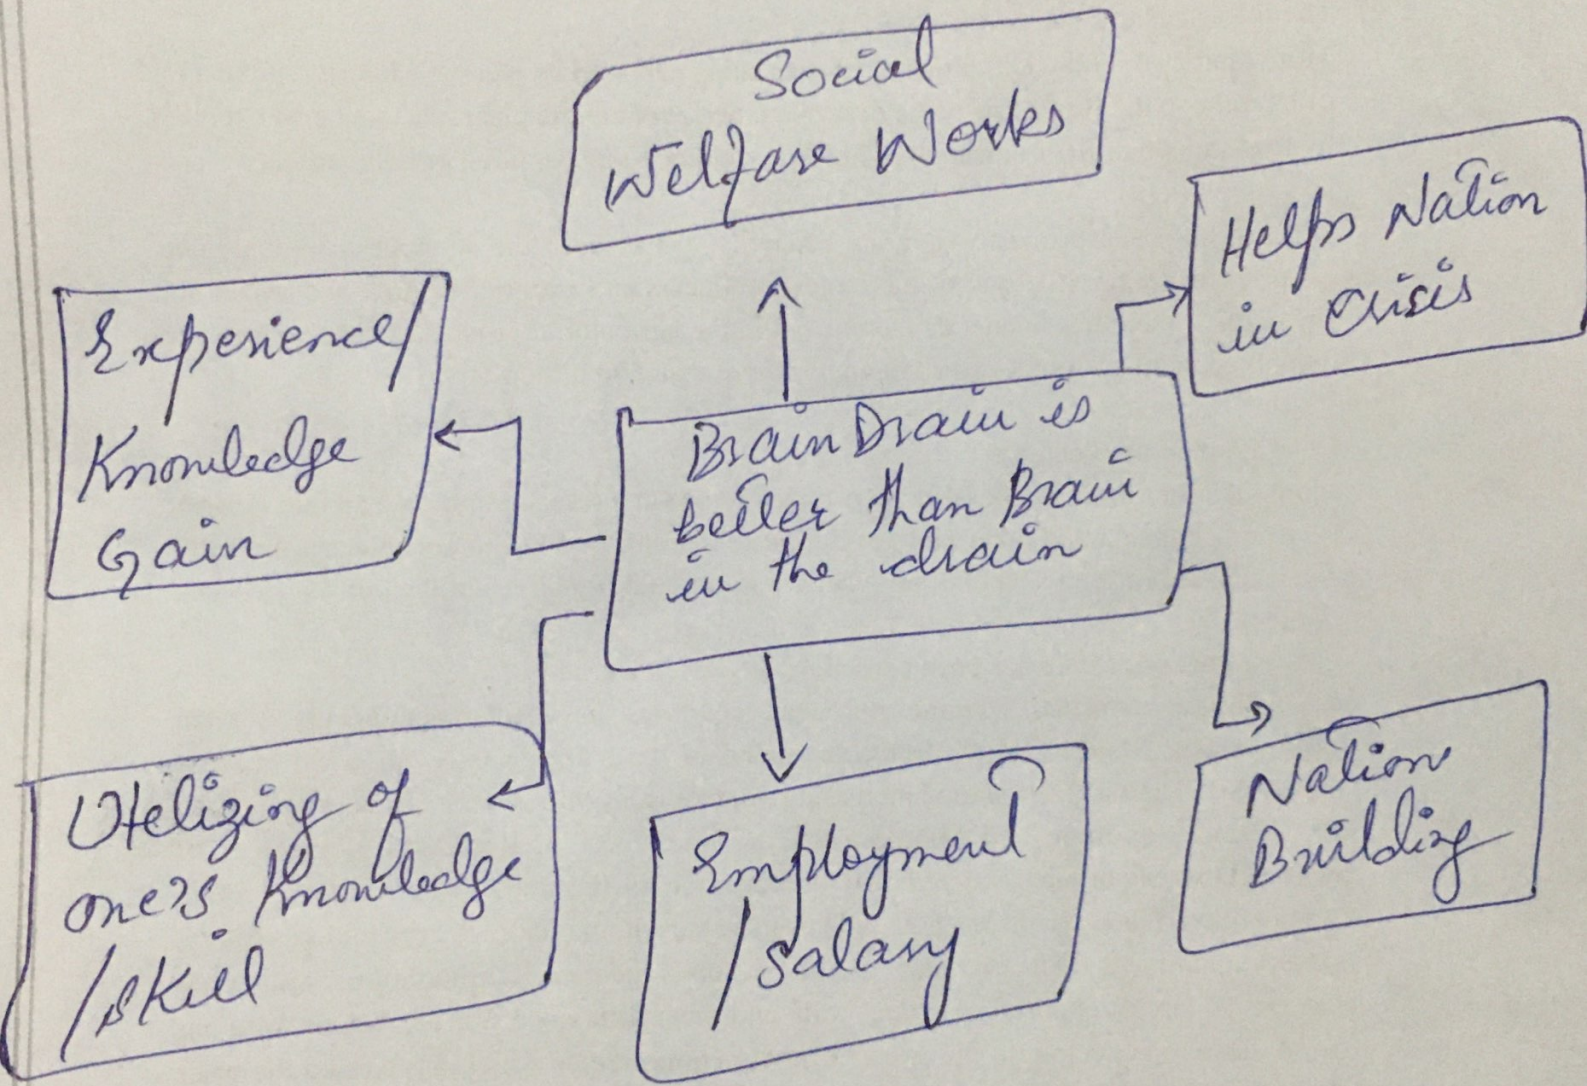 Social
Welfare Works
Helps Nation
in Crisis
Experience/
Knowledge
Gain
Brain Drain is
better than Brain
in the drain
Utelizing of
one's knowledge
/skill
Employment
/salary
Nation
Building